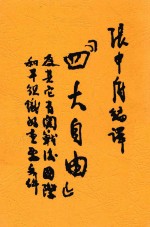 張申府編譯
『四大自由』
及其它有關戰後國際
和平組織的重要文件